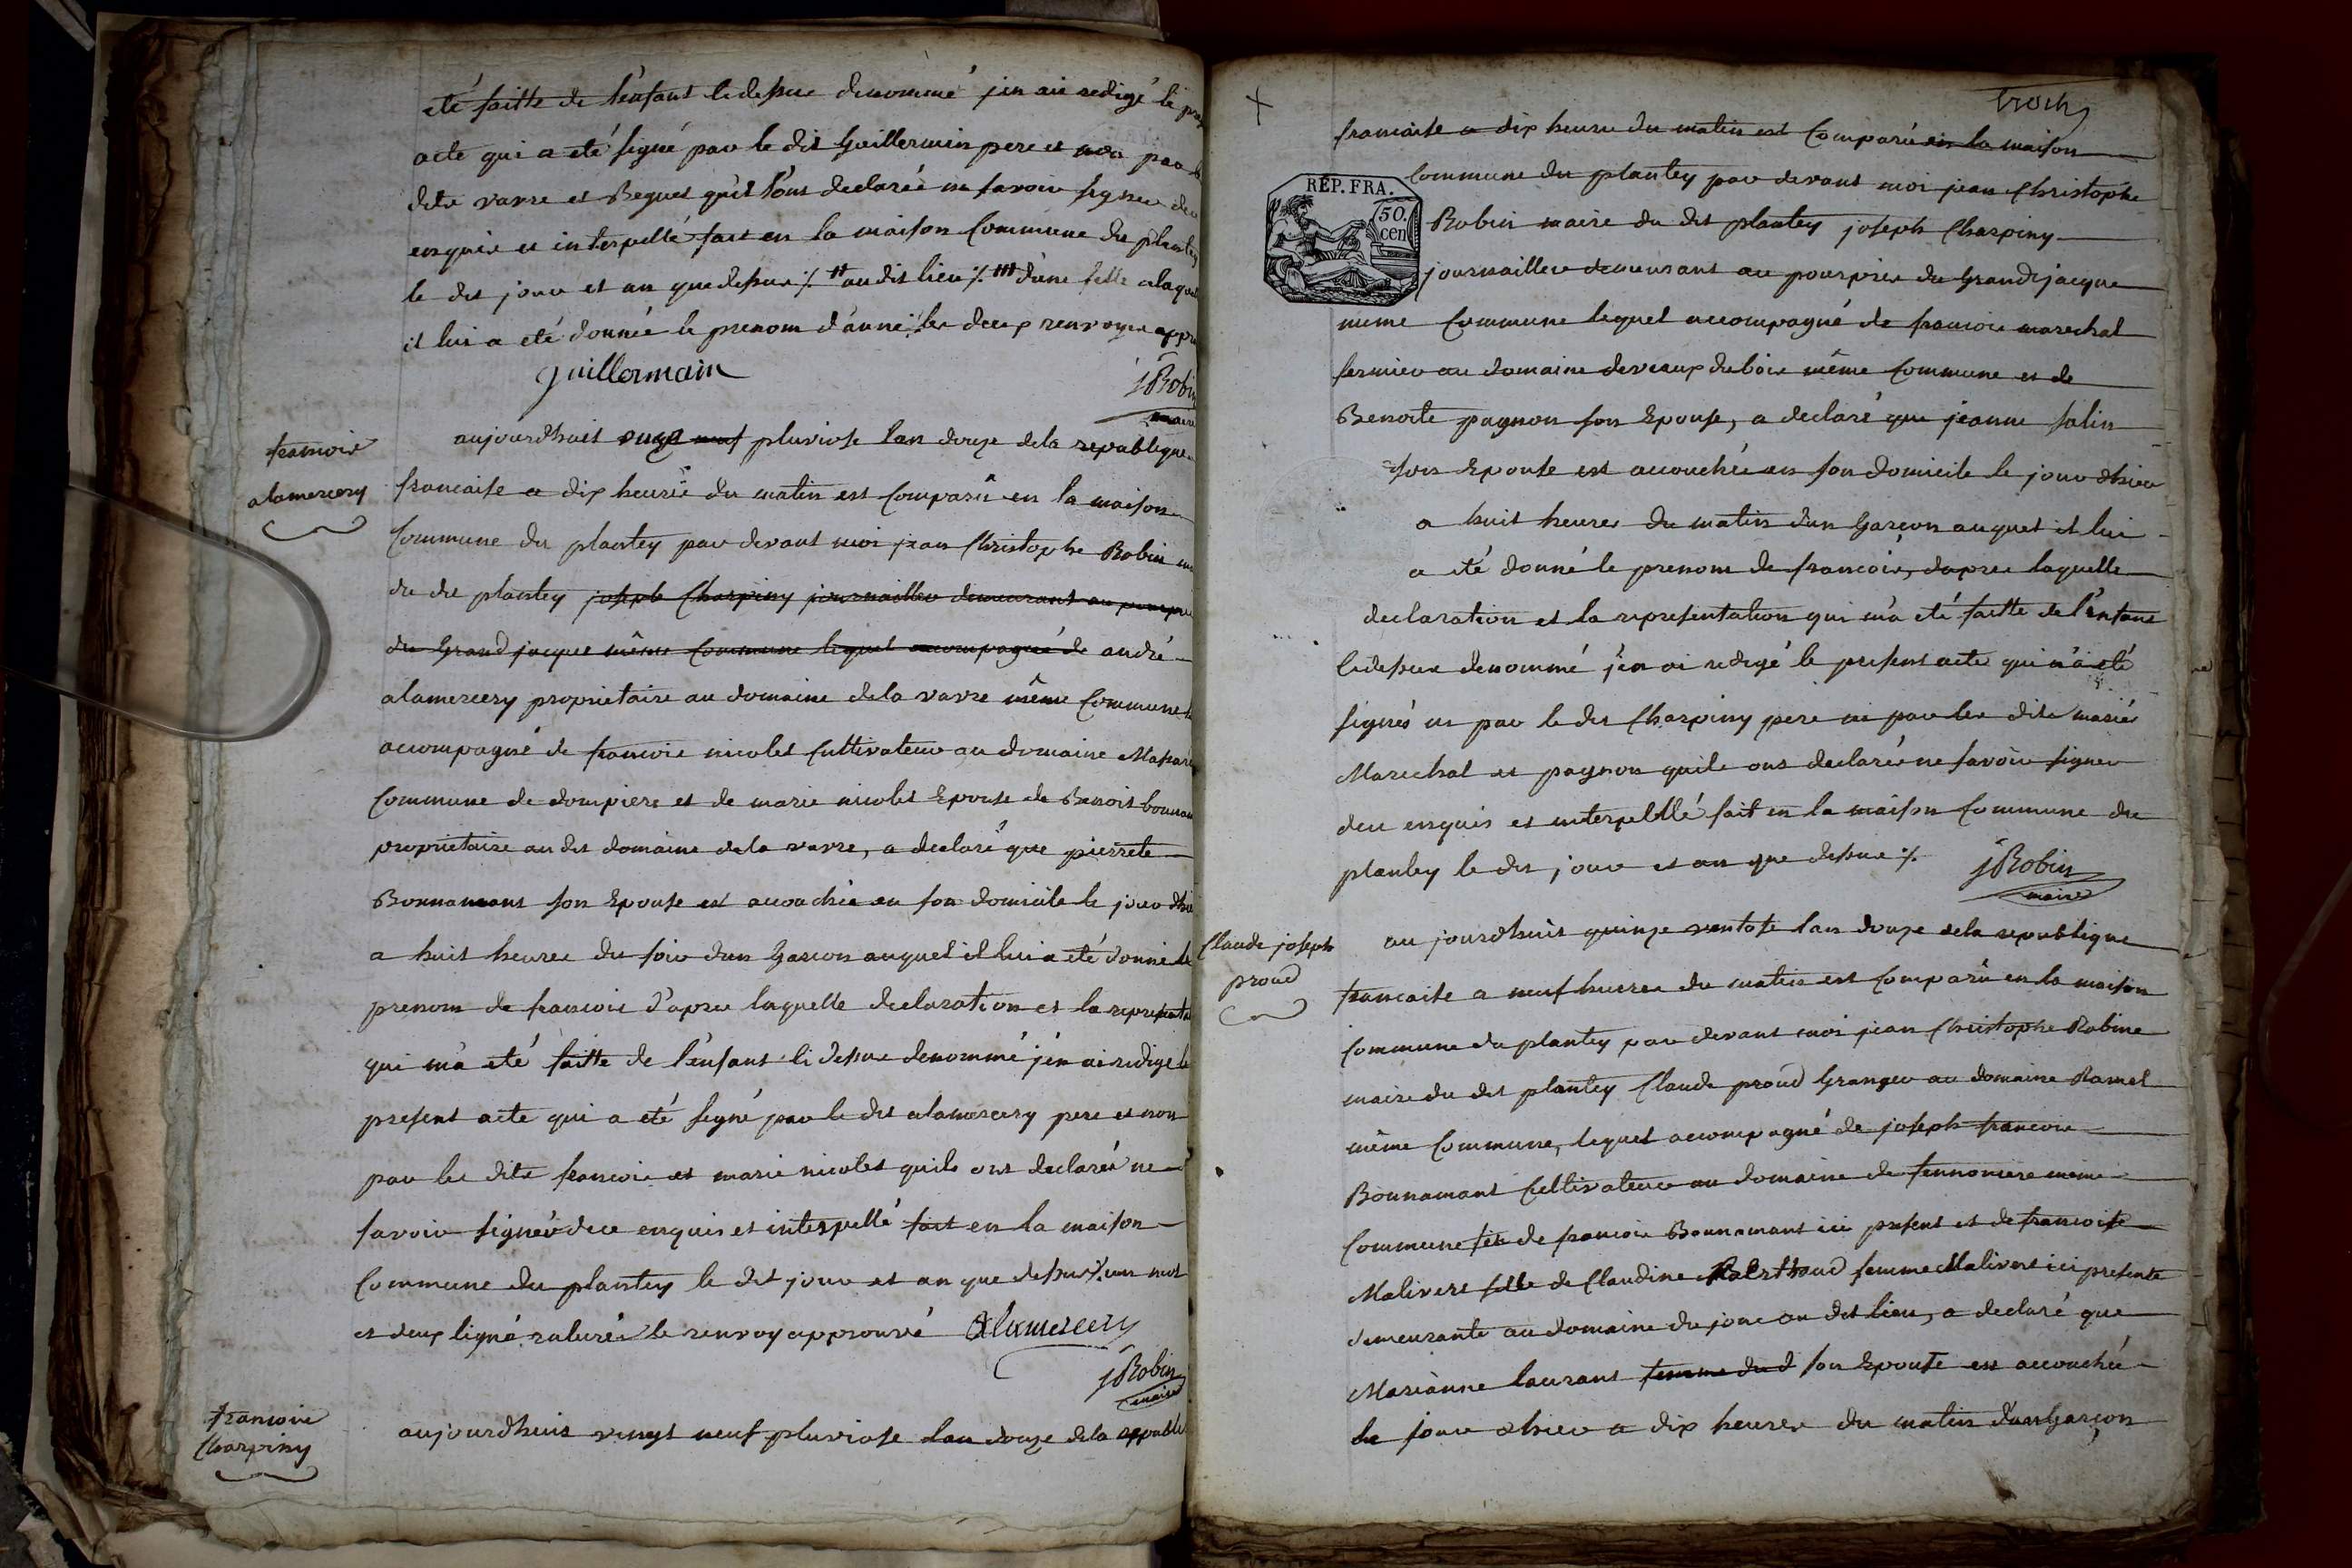 eté faitte de l'enfant cidessus denommé j'en ai redigé le
acte qui a eté signé par le dit Guillermin pere et non par
dits varre et Beguet qu'il l'ont declarés ne savoir signer de
enquis et interpellé fait en la maison Commune du plantey
le dit jour et an que dessus ./. # au dit lieu ./. ## d'une fille alaquel
il lui a eté donnée le prenom d'anne ./. les deux renvoyes appr
guillermain
J Robin
maire
francois
alamercery
aujourdhuit onze neuf pluviose lan douze dela republique
francaise a dix heures du matin est Comparû en la maison
Commune du plantey par devant moi jean Christophe Robin
du dit plantey joseph Charpiny journailler demeurant au pourpri
du Grand jacque même Commune lequel accompagné de andré
alamercery proprietaire au domaine dela varre même Commune
accompagné de francois nicolet Cultivateur au domaine
Commune de dompiere et de marie nicolet Epouse de Benoit bonnam
proprietaire au dit domaine dela varre, a declaré que pierrete
Bonnamant son Epouse est accouchée en son domicile le jour dhie
a huit heures du soir dun Garcon auquel il lui a eté donné le
prenom de francois d'apres laquelle declaration et la representa
qui m'a eté faitte de l'enfant ci dessus denommé j'en ai redigé le
present acte qui a eté signé par le dit alamercery pere et non
par les dits francois et marie nicolet quils ont declarés ne
savoir signer de ce enquis et interpellé fait en la maison
Commune du plantey le dit jour et an que dessus ./. un mot
et deux ligne raturés le renvoy approuvé Alamercery
J Robin
maire
francois
Charpiny
aujourdhuis vingt neuf pluviose lan douze dela republi
francaise a dix heures du matin est Comparû en la maison
REP. FRA.
50.
cen
Commune du plantey par devant moi jean Christophe
Robin maire du dit plantey joseph Charpiny
journailler demeurant au pourpris du Grand jacque
meme Commune lequel accompagné de francois marechal
fermier au domaine des vaux dubois même Commune et de
Benoite pagnon son Epouse, a declaré que jeanne salin
son Epouse est accouchée en son domicile le jour dhier
a huit heures du matin dun Garcon auquel il lui
a eté donné le prenom de francois, dapres laquelle
declaration et la representation qui m'a eté faitte de l'enfant
cidessus denommé j'en ai redigé le present acte qui n'a eté
signés ni par le dit Charpiny pere ni par les dits mariés
Marechal et pagnon quils ont declarés ne savoir signer
de ce enquis et interpellé fait en la maison Commune du
plantey le dit jour et an que dessus ./.
J Robin
maire
Claude joseph
proud
au jourdhuis quinze ventose lan douze dela republique
francaise a neuf heures du matin est Comparû en la maison
Commune du plantey par devant moi jean Christophe Robin
maire du dit plantey Claude proud Granger au domaine Ramel
même Commune, lequel accompagné de joseph francois
Bonnamant Cultivateur au domaine de même
Commune fils de francois Bonnamant ici present et de francoise
Malivert fille de Claudine femme Malivert ici presente
demeurante au domaine du jonc au dit lieu, a declaré que
Marianne laurant femme dud son Epouse est accouchée
le jour dhier a dix heures du matin d'un Garcon